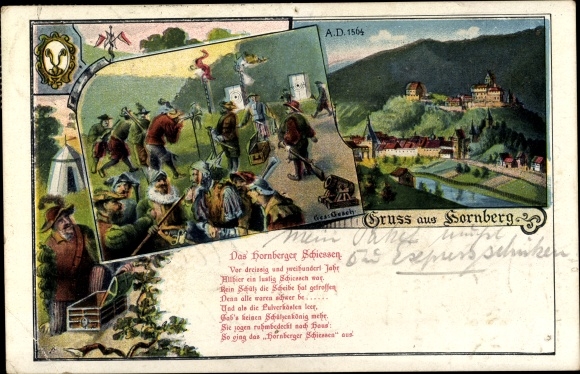 A.D. 1564
Ges. Gesch.
Gruss aus Hornberg
Mein Paket
Das Hornberger Schiessen.
Vor dreissig und zweihundert Jahr
Allhier ein lustig Schiessen war.
Kein Schütz die Scheibe hat getroffen
Denn alle waren schwer be......
Und als die Pulverkästen leer,
Gab's keinen Schützenkönig mehr.
Sie zogen ruhmbedeckt nach Haus:
So ging das „Hornberger Schiessen" aus